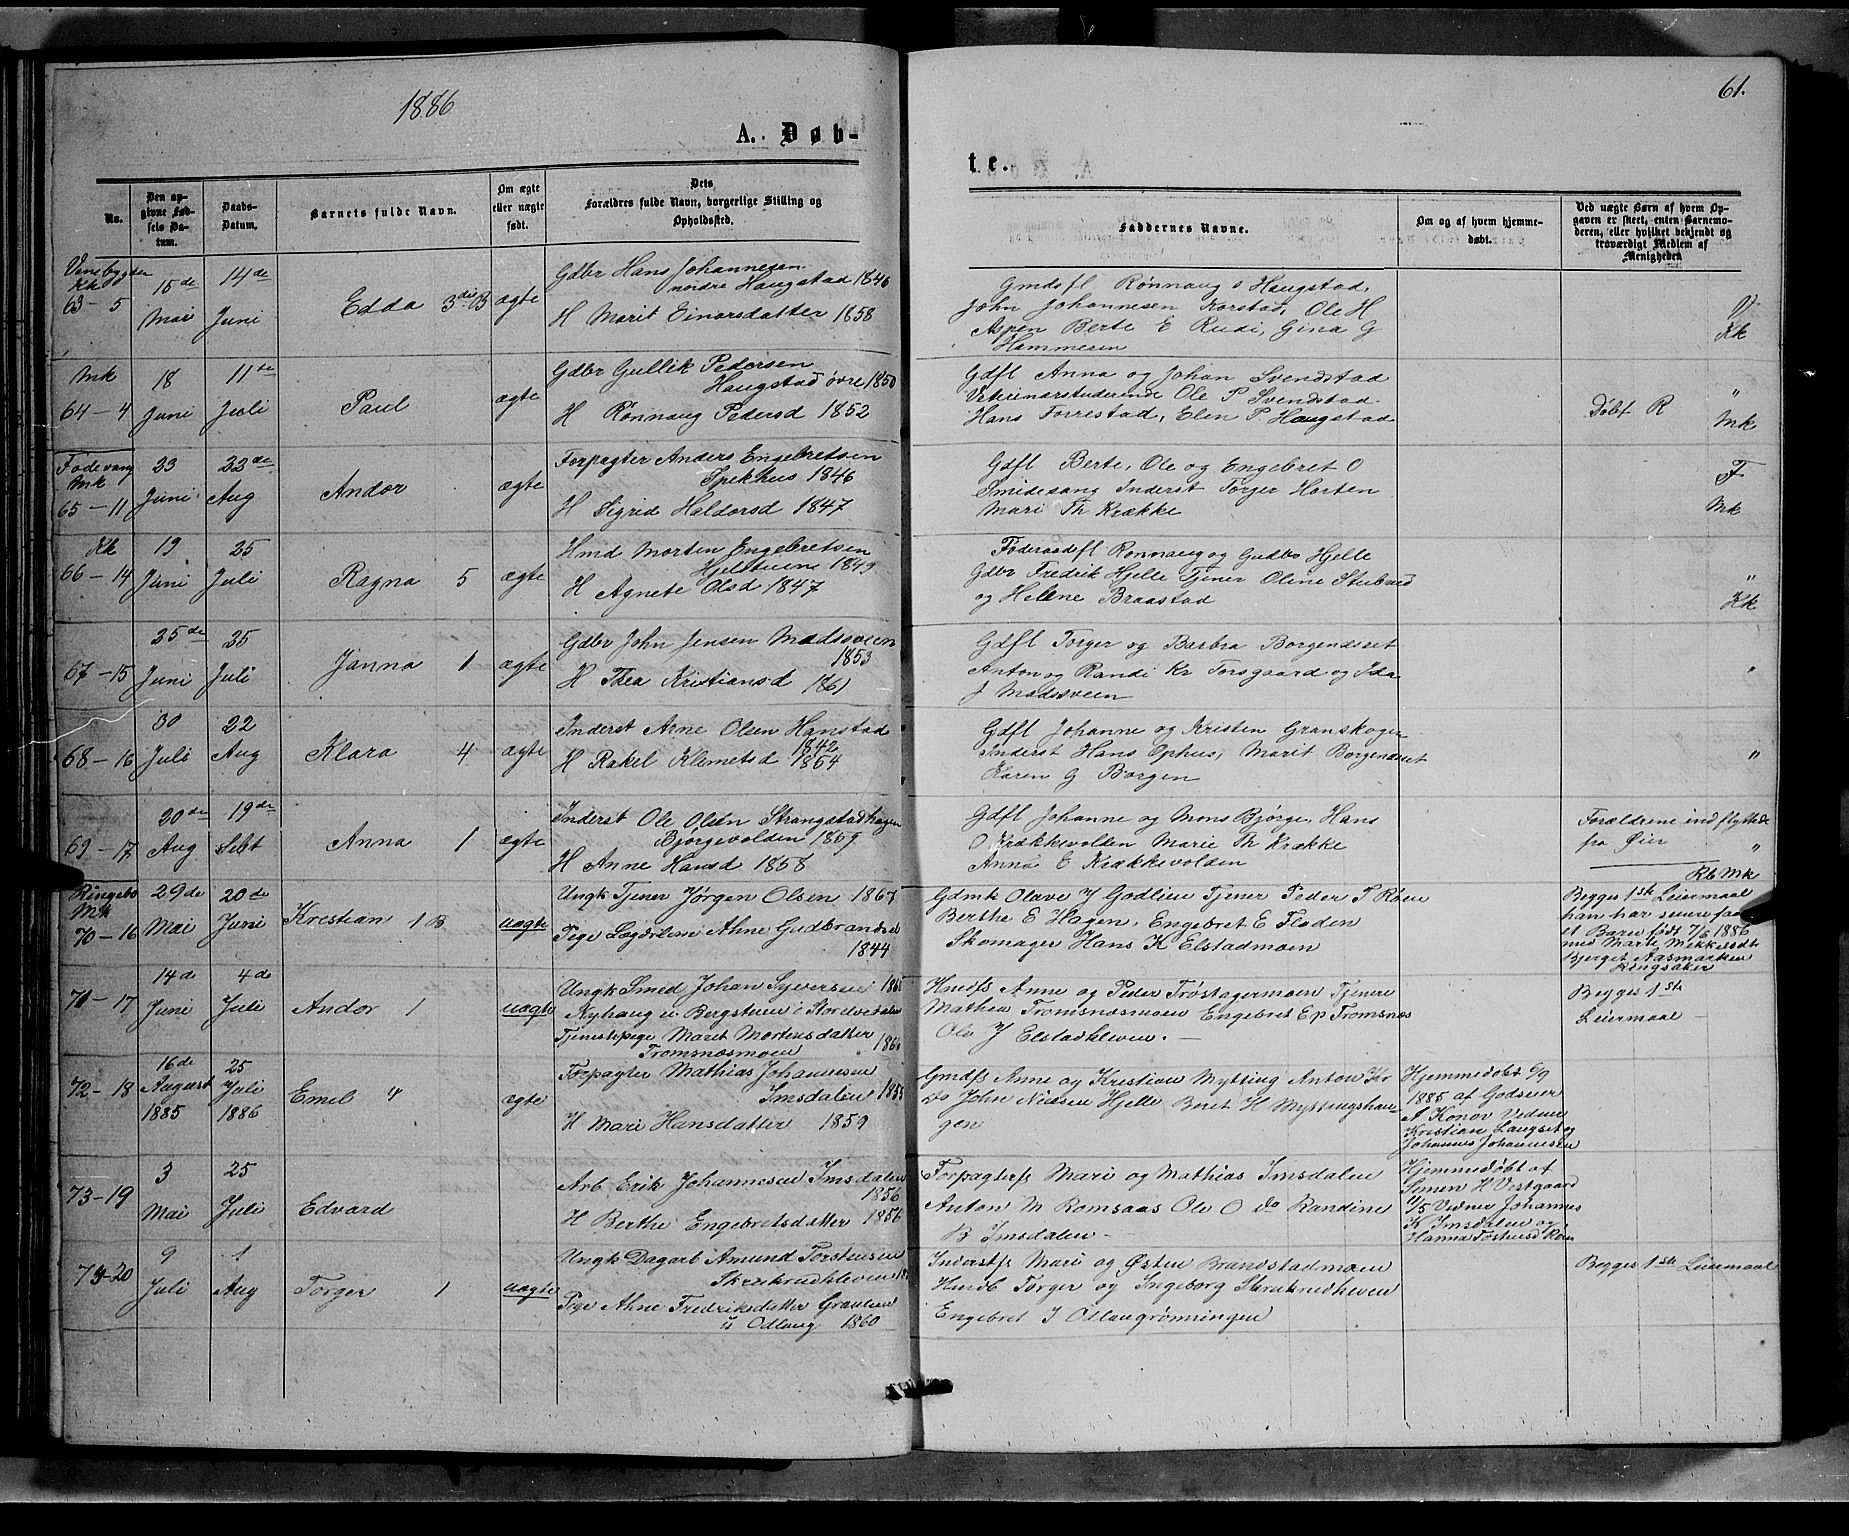 1886
61.
A. Døb-
te.
No.
Den op-
givne Fød-
sels Da-
tum.
Daabs-
Datum.
Barnets fulde Navn.
Om ægte
eller uægte
født.
Dets
Forældres fulde Navn, borgerlige Stilling og
Opholdssted.
Faddernes Navne.
Om og af hvem hjemme-
døbt.
Ved uægte Børn af hvem Op-
gaven er skeet, enten Barnemo-
deren, eller hvilket bekjendt og
troværdigt Medlem af
Menigheden
Venebygden
Kk
63-5
15de
Mai
14de
Juni
Edda 3die B
ægte
Gdbr Hans Johannesen
nordre Haugstad 1846
H Marit Einarsdatter 1858
Gmdsfl Rønnaug s Haugstad,
John Johannesen Korstad, Ole H
Aspen Berte E Rudi, Gina G
Hammeren
V
Kk
Mk
64-4
18
Juni
11te
Juli
Paul
ægte
Gdbr Gullik Pedersen
Haugstad øvre 1850
H Rønnaug Pedersd 1852
Gdfl Anna og Johan Svendstad
Veterinærstuderende Ole P Svendstad
Hans Forrestad, Elen P. Haugstad
Døbt R
"
Mk
Fodevang
Mk
65-11
23
Juni
22de
Aug
Andor
ægte
Forpagter Anders Engebretsen
Spekhus 1846
H Sigrid Haldorsd 1847
Gdfl Berte, Ole og Engebret O
Smidesang Inderst Torger Horten
Mari Th Krække
F
Mk
Kk
66-14
19
Juni
25
Juli
Ragna 5
ægte
Hmd Morten Engebretsen
Hjelstuene 1849
H Agnete Olsd 1847
Føderaadsfl Rønnaug og Gudbr Hjelle
Gdbr Fredrik Hjelle Tjener Oline Stubaad
og Helene Braastad
"
Kk
67-15
25de
Juni
25
Juli
Janna 1
ægte
Gdbr John Jensen Madssveen
1853
H Thea Kristiansd 1861
Gdfl Torger og Barbra Borgendset
Anton og Randi Kr Forsgaard og Ida
J Madssveen
"
68-16
30
Juli
22
Aug
Klara 4
ægte
Inderst Arne Olsen Hanstad
1842
H Rakel Klemetsd 1854
Gdfl Johanne og Kristen Granskogen
Inderst Hans Ophus, Marit Borgendset
Karen G Borgen
"
69-17
30de
Aug
19de
Sebt
Anna 1
ægte
Inderst Ole Olsen Strangstadhagen
Bjørgevolden 1859
H Anne Hansd 1858
Gdfl Johanne og Mons Bjørge, Hans
O Krækkevolden Marie Th Krække
Anna E Krækkevolden
Forældrene indflyttede
fra Øier "
Rb Mk
Ringebo
Mk
70-16
29de
Mai
20de
Juni
Krestian 1 B
uægte
Ungk Tjener Jørgen Olsen 1867
Pige Anne Gudbrandsd
1844
Gdmk Olave J Godlien Tjener Peder T Røen
Berthe E Hagen, Engebret E Floden
Skomager Hans K Elstadmoen
Begges 1ste Leiermaal
han har senere faaet
et Barn født 7/6 1886
med Marte Mikkelsdt
Bjerget Aasmarken
Ringsaker
71-17
14de
Juni
4de
Juli
Andor 1
uægte
Ungk Smed Johan Syversen
Nyhaug u Bergstuen i Stordvedalen
Tjenestepige Maret Mortensdatter
Tromsnæsmoen 1866
Hmdfs Anne og Peder Trøstagermoen Tjenere
Mathea Tromsnæsmoen Engebret E p Tromsnæs
Ole J Elstadkleven. -
Begges 1ste
Leiermaal -
72-18
16de
August
1885
25
Juli
1886
Emel 4
ægte
Forpagter Mathias Johannesen
Imsdalen
H Mari Hansdatter 1859
Gmdfs Anne og Kristian Mytting Anton Kr
do John Nielsen Hjelle Beret H Myttingshau-
gen
Hjemmedøbt 6/9
1885 af Godseier
A Konov Vedner
Kristian Langset og
Johannes Johannesen
73-19
3
Mai
25
Juli
Edvard
ægte
Arb Erik Johannesen Imsdalen
1856
H Berthe Engebretsdatter 1856
Forpagterfs Mari og Mathias Imsdalen
Anton M Romsaas Ole O do Randine
B Imsdalen -
Hjemmedøbt af
Simen H Vestgaard
11/5 Vedner Johannes
K Imsdalen og
Hanna
74-20
9
Juli
1
Aug
Torger 1
uægte
Ungk Dagarb Amund Torstensen
Skrukrudkleven
Pige Anne Fredriksdatter Graulien
u Odlaug 1860
Inderstfs Mari og Østen Brandstadmoen
Hmdb Torger og Ingeborg Skrukrudkleven
Engebret J Odlaugrønningen
Begges 1ste Leiermaal